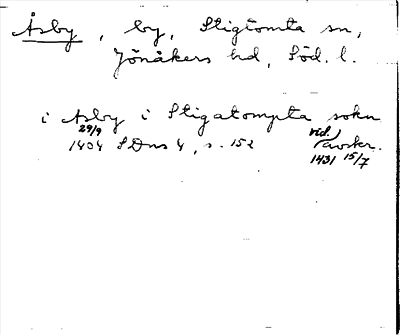 Åsby, by, Stigtomta sn,
Jönåkers hd, Söd. l.
i Asby i Stigatompta sokn
29/9 1404 SDns 4, s. 152 vid. avskr. 1431 15/7